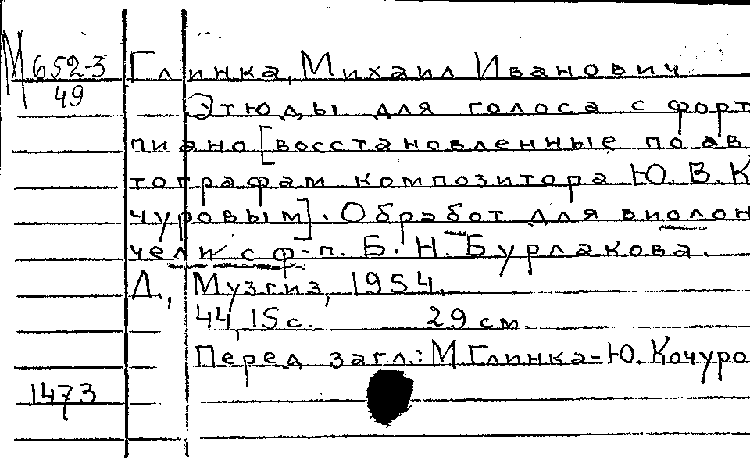 М 652-3 Глинка, Михаил Иванович
49 Этюды для голоса с форт
пиано [восстановленные по ав
тографам композитора Ю. В. К
чуровым]. Обработ для виолон
чели с ф-п. Б. Н. Бурлакова.
Л., Музгиз, 1954.
44, 15 с. 29 см
Перед загл.: М. Глинка - Ю. Кочуро
1473